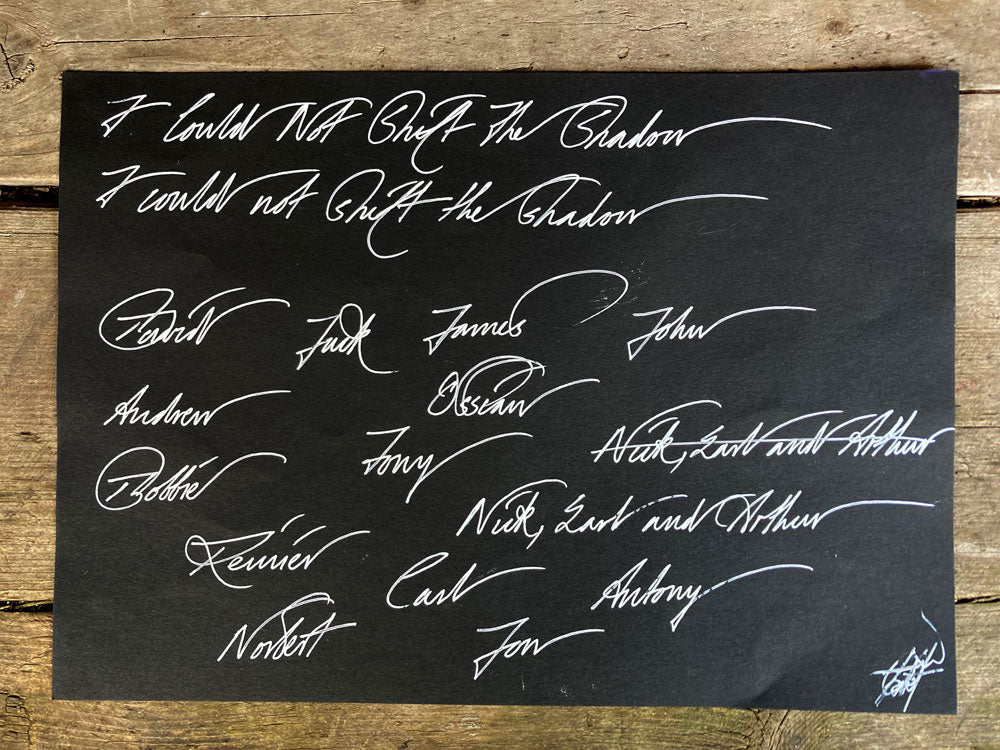 I Could Not Shift The Shadow
I could not shift the shadow
David Jack James John
Andrew Ossian
Nick, Earl and Arthur
Bobbie Tony
Nick, Earl and Arthur
Reinier
Carl Antony
Norbert Jon